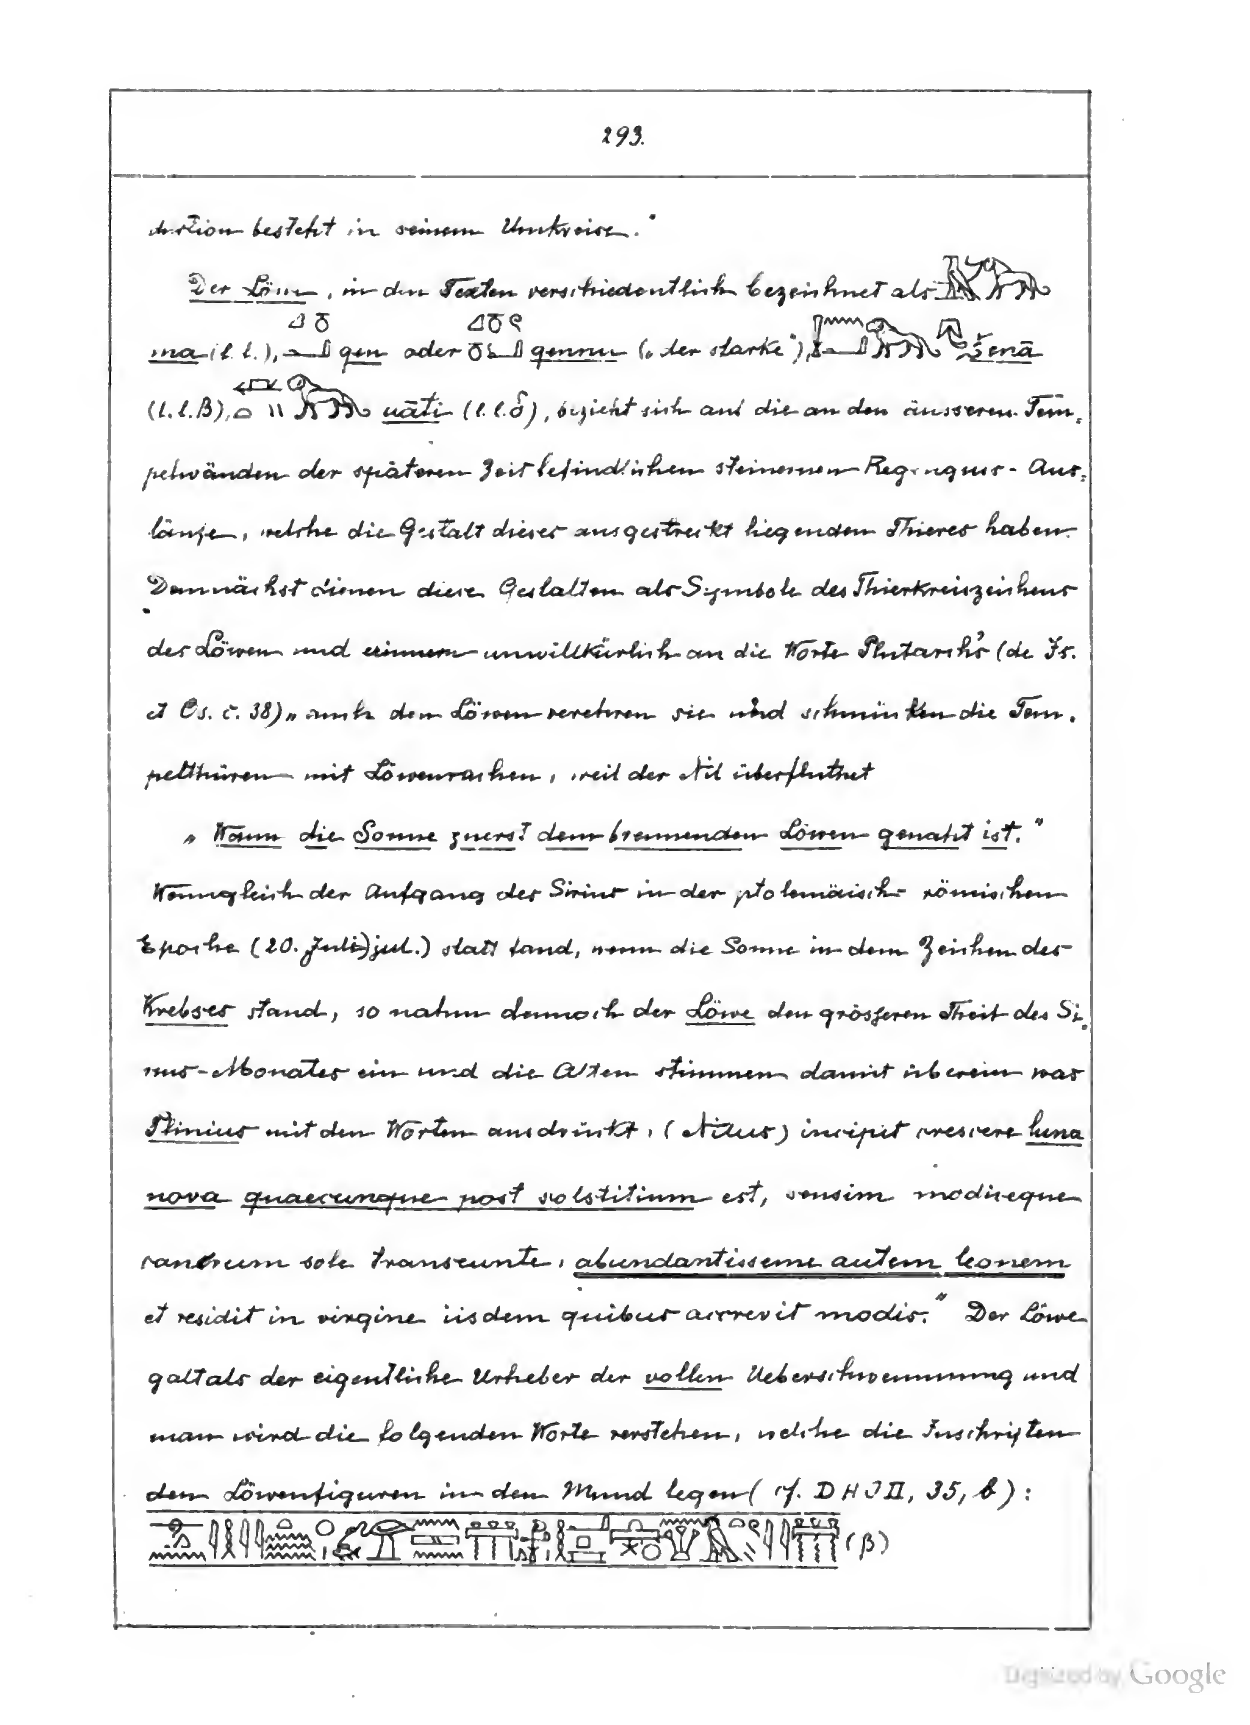 293.
duction besteht in seinem Umkreise."
Der Löwe, in den Texten verschiedentlich bezeichnet als
ma (l. l.), qen oder qennu („der starke"), šenā
(l. l. β), uāti (l. l. δ), bezieht sich auf die an den äusseren Tem-
pelwänden der späteren Zeit befindlichen steinernen Regenguss-Aus-
läufe, welche die Gestalt dieses ausgestreckt liegenden Thieres haben.
Demnächst dienen diese Gestalten als Symbole des Thierkreiszeichens
des Löwen und erinnern unwillkürlich an die Worte Plutarch's (de Is.
et Os. c. 38) „auch den Löwen verehren sie und schmücken die Tem-
pelthüren mit Löwenrachen, weil der Nil überfluthet
„Wann die Sonne zuerst dem brennenden Löwen genaht ist."
Wenngleich der Aufgang des Sirius in der ptolemäisch-römischen
Epoche (20. Juli jul.) statt fand, wenn die Sonne in dem Zeichen des
Krebses stand, so nahm dennoch der Löwe den grösseren Theil des Si-
rius-Monates ein und die Alten stimmen damit überein was
Plinius mit den Worten ausdrückt, (Nilus) incipit crescere luna
nova quaecunque post solstitium est, sensim modiceque
cancrum sole transeunte, abundantisseme autem leonem
et residit in virgine iisdem quibus accrevit modis." Der Löwe
galt als der eigentliche Urheber der vollen Ueberschwemmung und
man wird die folgenden Worte verstehen, welche die Inschriften
den Löwenfiguren in den Mund legen (cf. DHI II, 35, b):
(β)
Digitized by Google